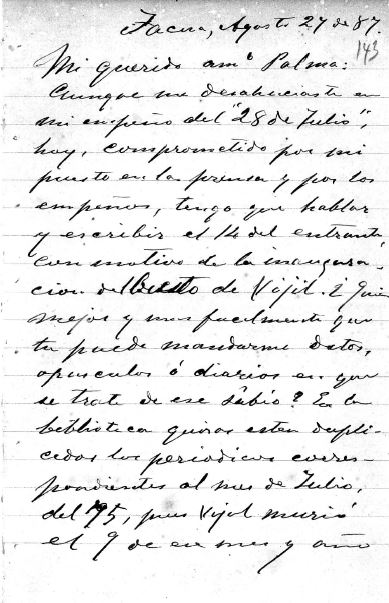 Tacna, Agosto 27 de 87.
143
Mi querido amº Palma:
Aunque me desahuciaste en
mi empeño del "28 de Julio",
hoy, comprometido por mi
puesto en la prensa y por los
empeños, tengo que hablar
y escribir el 14 del entrante
con motivo de la inaugura-
cion del busto de Vijil. ¿Quien
mejor y mas facilmente que
tu puede mandarme datos,
opusculos ó diarios en que
se trate de ese sábio? En la
biblioteca quizas esten dupli-
cados los periodicos corres-
pondientes al mes de Julio,
del 75, pues Vijil murió
el 9 de ese mes y año